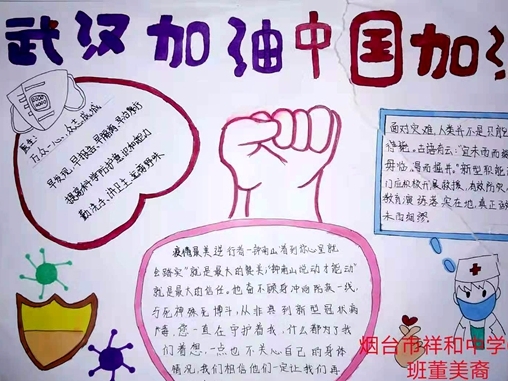 武汉加油中国加
万众一心,众志成城
早发现,早报告,早隔离,早治疗
提高科学防护意识和能力
勤洗手,讲卫生,
面对灾难,人类并不是只能
措施。古语有云:"宜未雨而
毋临渴而掘井。"新型职能
教育演练落实在地,真正
未雨绸缪。
疫情最美逆行者—钟南山看到你心里就
会踏实"就是最大的赞美,"钟南山说动才能动"
就是最大的信任。他奋不顾身冲向防疫一线,
与死神殊死搏斗,从非典到新型冠状病
毒,您一直在守护着我,什么都为了我
们着想,一点也不关心自己的身体
情况,我们相信他们一定让我们再
烟台市祥和中学
班董美裔